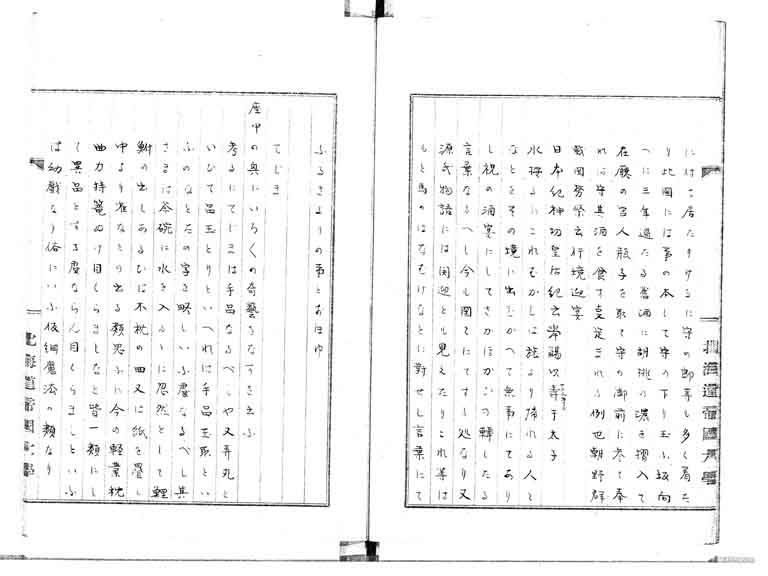 に付て居たりけるに守の郎等も多く有た
り此国には事の本して守の下り玉ふ坂向
へに三年過たる旧酒に胡桃の濃き摺入て
在庁の官人瓶子を取て守の御前に参て奉
れは守其酒を食す事定まれる例也朝野群
載国務条云行境迎宴
日本紀神功皇后紀云挙觴以寿于太子
水採るにこれむかしは旅より帰れる人と
なとをその境に出むかへて無事にてあり
し祝の酒宴にしてさかほかひの転したる
言葉なるへし今も国てにてする処なり又
源氏物語には関迎とも見えたりこれ等は
もと馬のはなむけなとに対せし言葉にて
ふるきよりの事とおほゆ
てじま
座中の興にいろ〱の奇芸をなすを云ふ
考るにてじまは手品なるべしや又弄丸と
いひて品玉とりといへれは手品玉取とい
ふのなとたの字を略しいふ処なるべし其
さまは茶碗に水を入るゝに忽然として鯉
鮒の出しあるひは木枕の四又は紙を畳し
中より雀なとの出る類思ふに今の軽業枕
曲力持篭ぬけ目くらましなと皆一類にし
て異品とする処ならん目くらましといふ
は幼戯なり俗にいふ仮細魔法の類なり
北海道帝国大学
北海道帝国大学